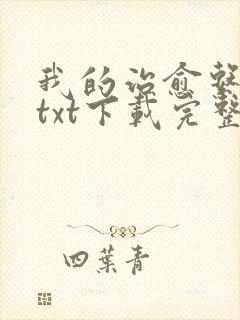 我的治愈系
txt下载完整
四葉青